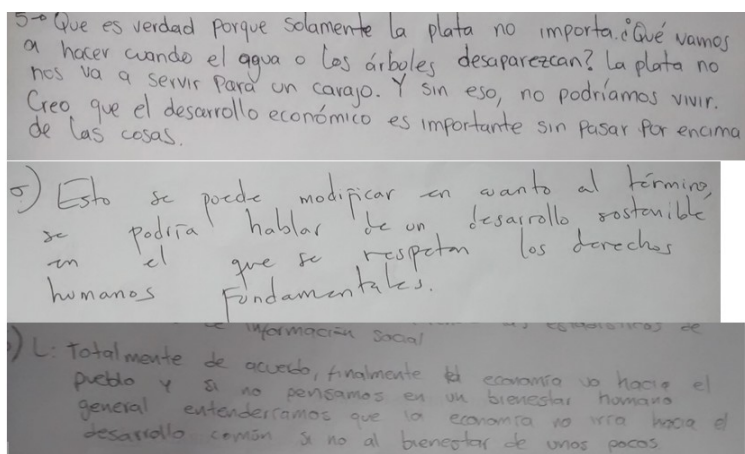 5-o Que es verdad porque solamente la plata no importa. ¿Qué vamos
a hacer cuando el agua o los árboles desaparezcan? La plata no
nos va a servir para un carajo. Y sin eso, no podríamos vivir.
Creo que el desarrollo económico es importante sin pasar por encima
de las cosas.
5) Esto se puede modificar en cuanto al término,
se podría hablar de un desarrollo sostenible
en el que se respetan los derechos
humanos fundamentales.
de información social de
) L: Totalmente de acuerdo, finalmente la economía va hacia el
pueblo y si no pensamos en un bienestar humano
general entenderíamos que la economía no iría hacia el
desarrollo común si no al bienestar de unos pocos